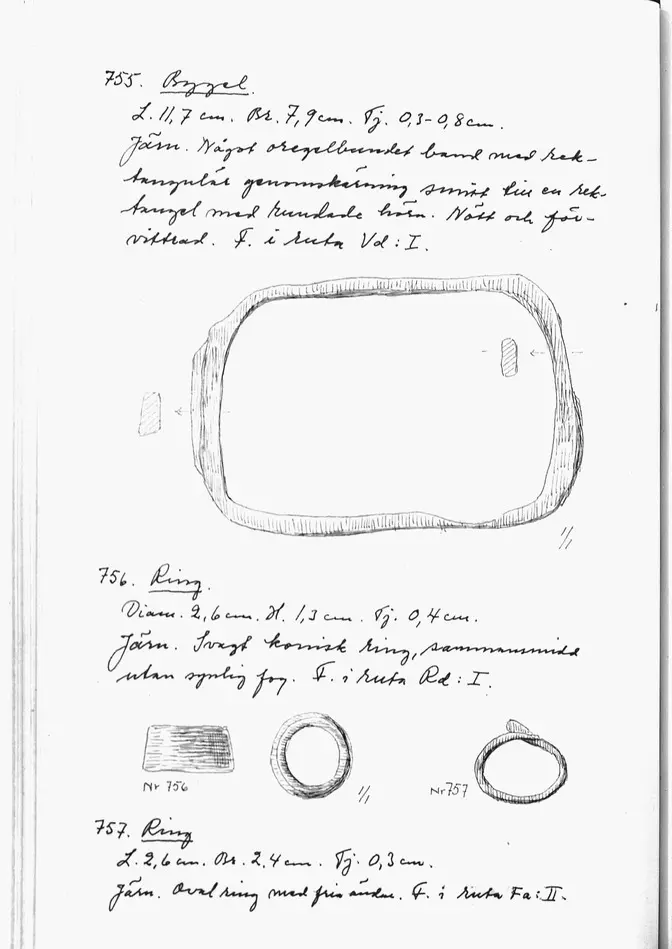 755. Bygel.
L. 11,7 cm. Br. 7,9 cm. Tj. 0,3-0,8 cm.
Järn. Något oregelbundet band med rek-
tangulär genomskärning smitt till en rek-
tangel med rundade hörn. Nött och för-
vittrad. F. i ruta Vd : I.
1/1
756. Ring.
Diam. 2,6 cm. H. 1,3 cm. Tj. 0,4 cm.
Järn. Svagt konisk ring, sammansmidd
utan synlig fog. F. i ruta Rd : I.
Nr 756
1/1
Nr 757
757. Ring
L. 2,6 cm. Br. 2,4 cm. Tj. 0,3 cm.
Järn. Oval ring med fria ändar. F. i ruta Fa : II.